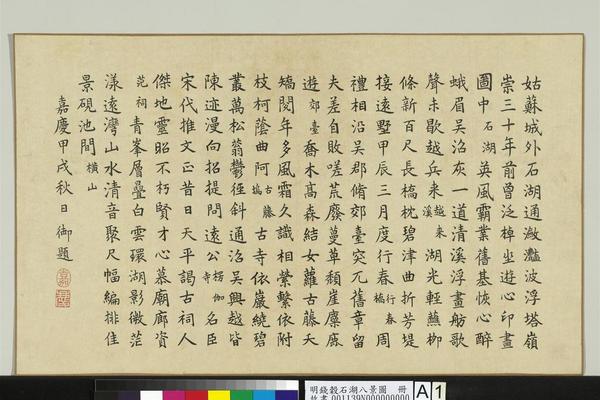 姑蘇城外石湖通瀲灩波浮塔嶺
崇三十年前曾泛棹坐遊心印畫
圖中石湖英風霸業舊基恢心醉
蛾眉吳沼灰一道清溪浮畫舫歌
聲未歇越兵來越來溪湖光輕蘸柳
條新百尺長橋枕碧津曲折芳堤
接遠墅甲辰三月度行春行春橋周
禮相沿吳郡脩郊臺突兀舊章留
夫差自敗嗟荒廢蔓草頹崖麋鹿
遊郊臺喬木高森結女蘿古藤天
矯閱年多風霜久識相縈繫依附
枝柯蔭曲阿古藤橋古寺依巖繞碧
叢萬松蓊鬱徑斜通沼吳興越皆
陳迹漫向招提問遠公楞伽寺名臣
宋代推文正昔日天平謁古祠人
傑地靈昭不朽賢才心慕廟廊資
范祠青峯層疊白雲環湖影微茫
漾遠灣山水清音聚尺幅編排佳
景硯池間橫山
嘉慶甲戌秋日御題
明錢穀石湖八景圖 冊
故畫 001139N000000000
A 1